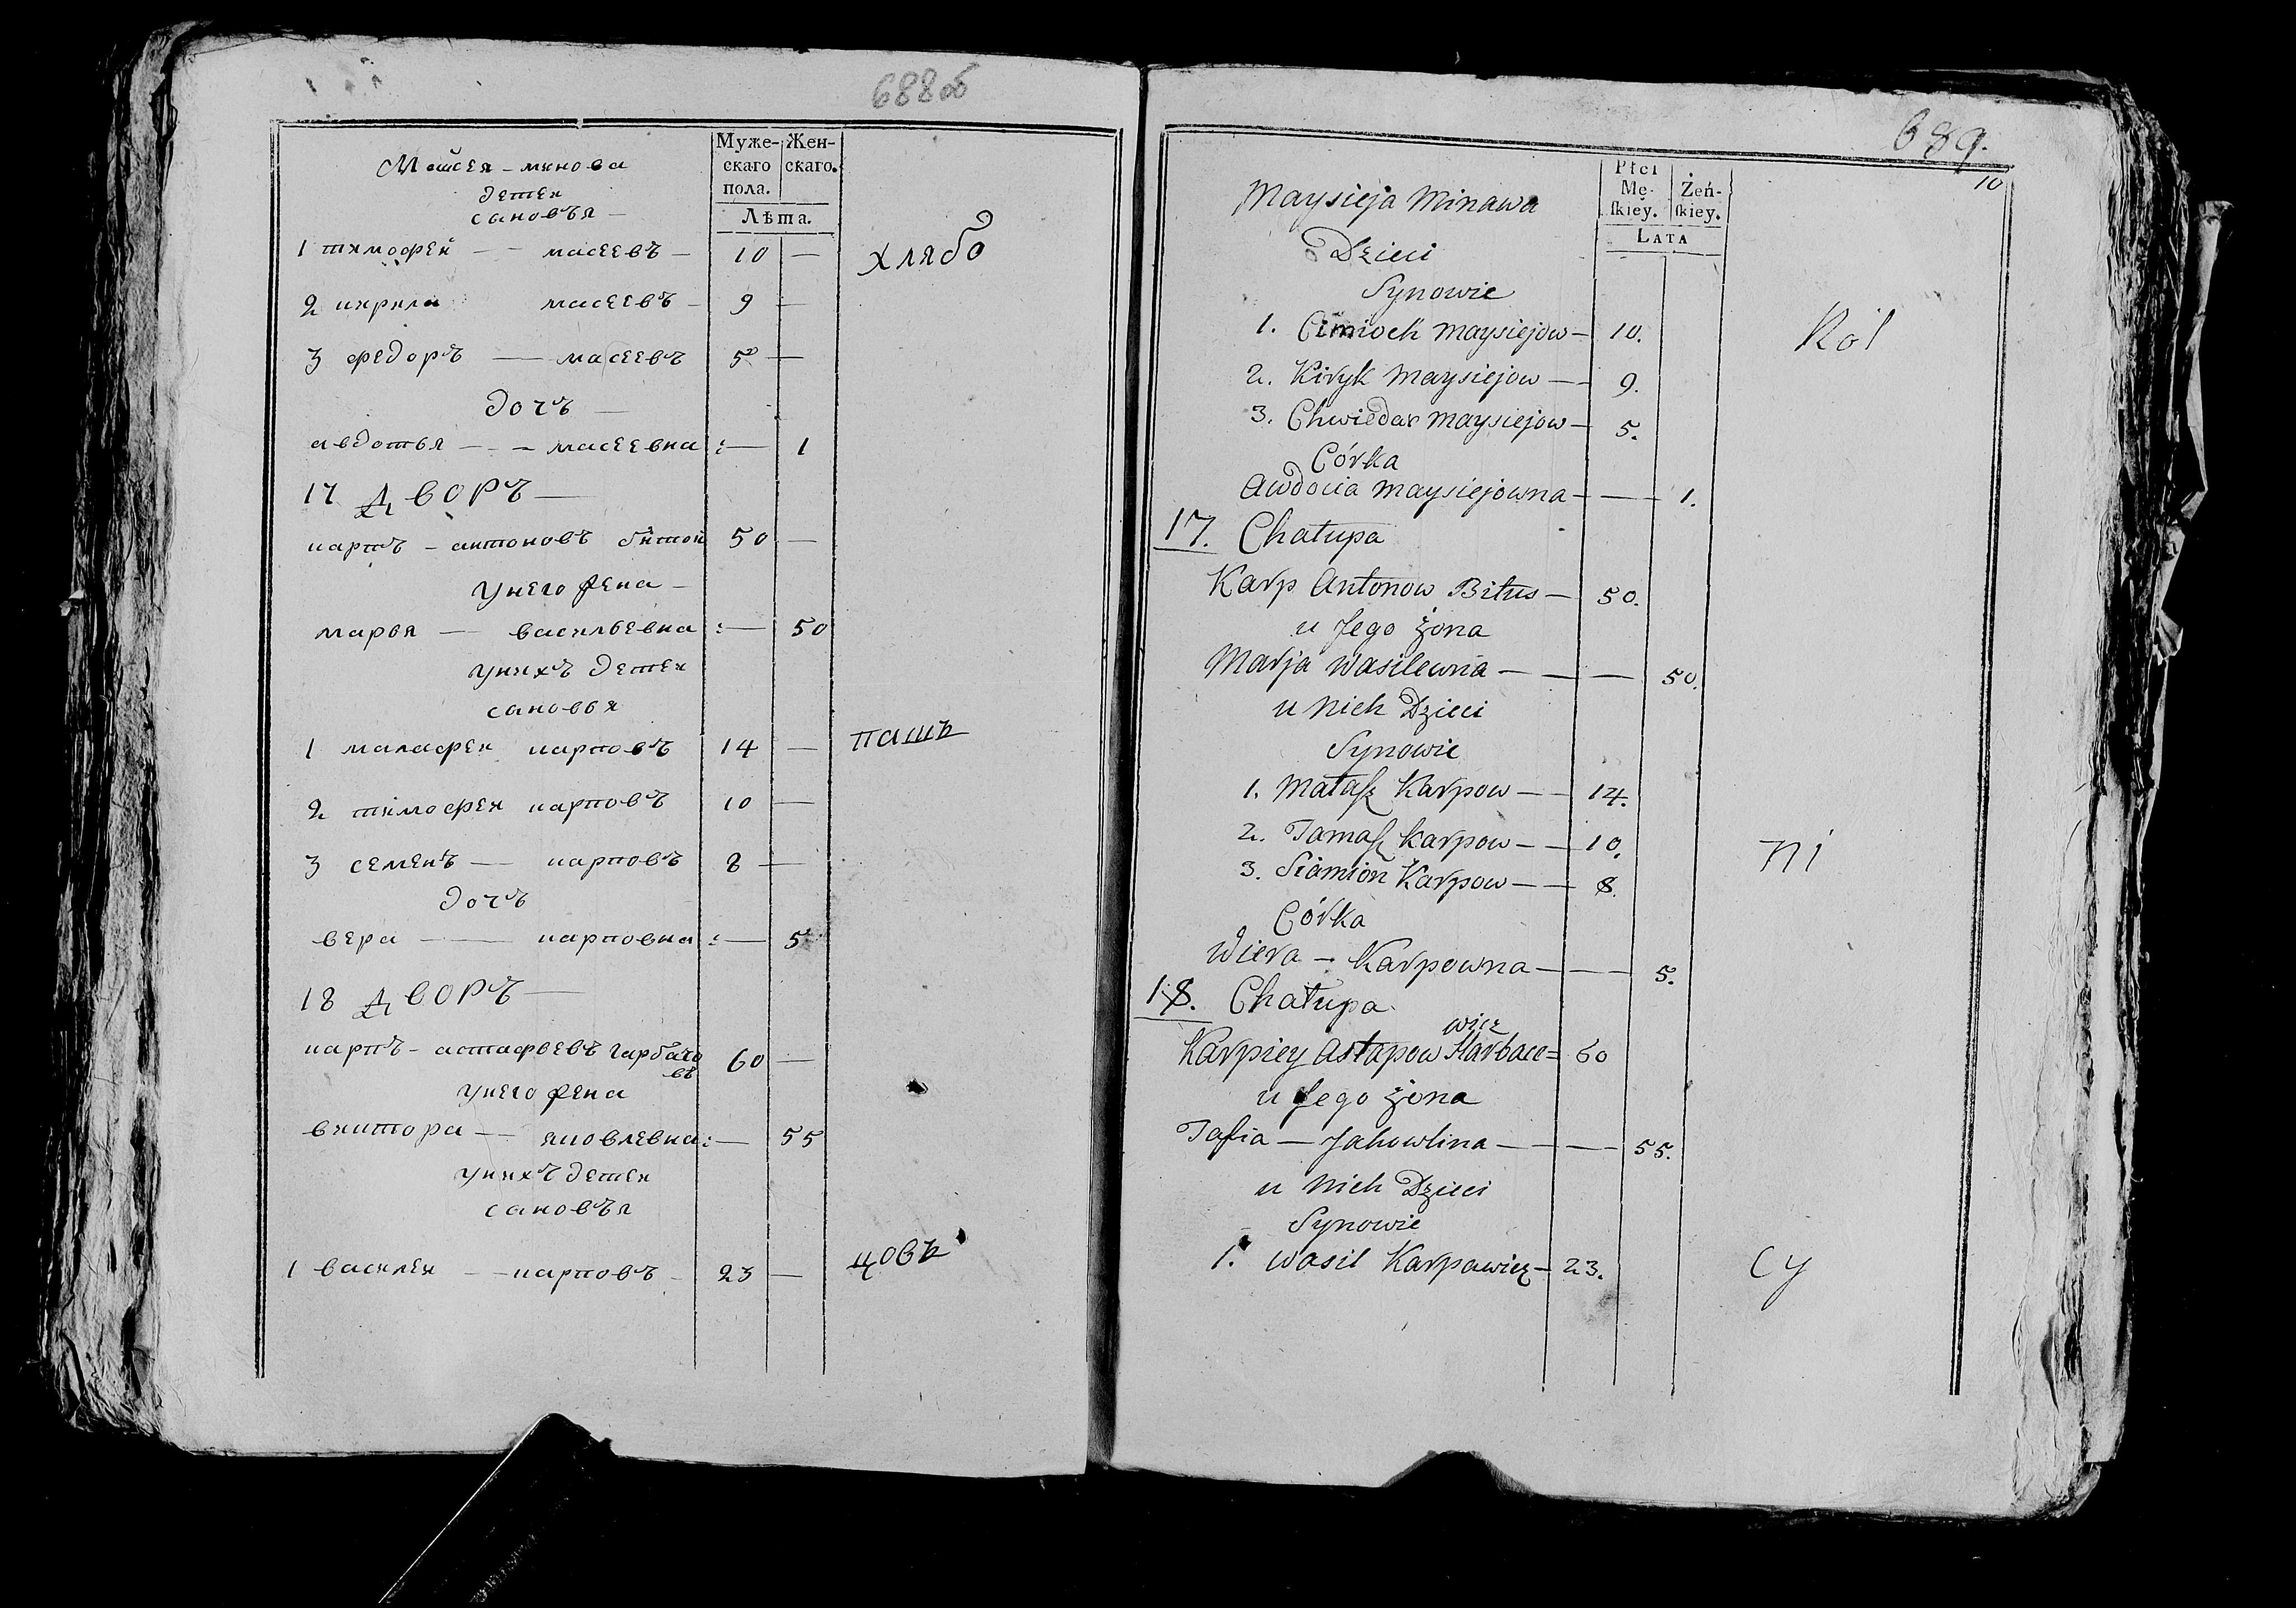 688об
Муже- Жен-
скаго скаго.
пола.
Лѣта.
Мойсея - минова
детей
сановъя -
1 тимофей - масеевъ - 10 -
хлябо
2 кирила масеевъ - 9 -
3 федоръ - масеевъ 5 -
дочъ -
авдотья - - масеевна : - 1
17 дворъ -
карпъ - антоновъ битой 50 -
унего жена -
марья - васильевна : - 50
унихъ детей
сановья
1 малафей карповъ 14 -
пашъ
2 тимофей карповъ 10 -
3 семенъ - карповъ 8 -
дочъ
вера - карповна : - 5
18 дворъ -
карпъ - астафьевъ гарбачо 60 -
въ
унего жена
виктора - яковлевна : - 55
унихъ детей
сановъя
1 василей - карповъ - 23 -
цовъ
689.
10
Płci
Mę- Żeń-
skiey. skiey.
LATA
Maysieja Minawa
Dzieci
Synowie
1. Cimioch Maysiejow - 10.
Rol
2. Kiryk Maysiejow - 9.
3. Chwiedar Maysiejow - 5.
Córka
Awdocia Maysiejowna - - 1.
17. Chałupa
Karp Antonow Bitus - 50.
u Jego żona
Marja Wasilewna - - - 50.
u Nich Dzieci
Synowie
1. Małasz Karpow - - 14.
2. Tamasz Karpow - - 10.
ni
3. Siamion Karpow - - 8.
Córka
Wiera - Karpowna - - 5.
18. Chałupa
wicz
Karpiey Astapow Harbace= 60
u Jego żona
Tafia - Jakowlina - - 55.
u Nich Dzieci
Synowie
1. Wasil Karpawicz - 23.
cy